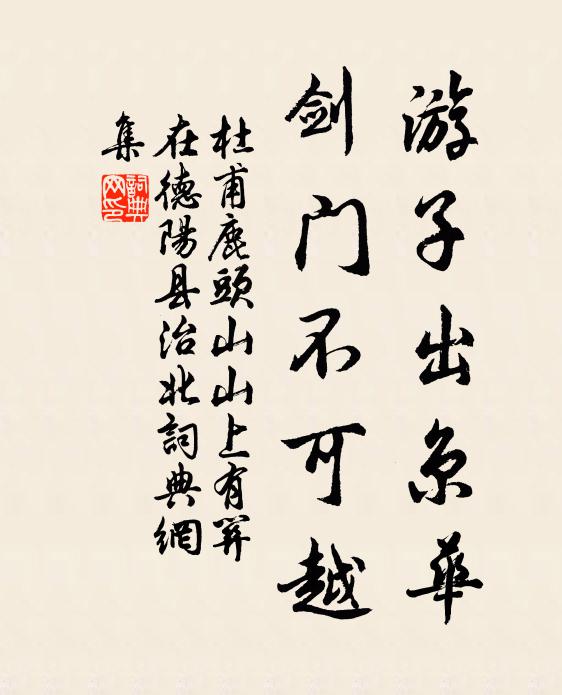 游子出京華
剑门不可越
杜甫鹿頭山山上有關
在德陽县治北詞典網
集
詞典网印